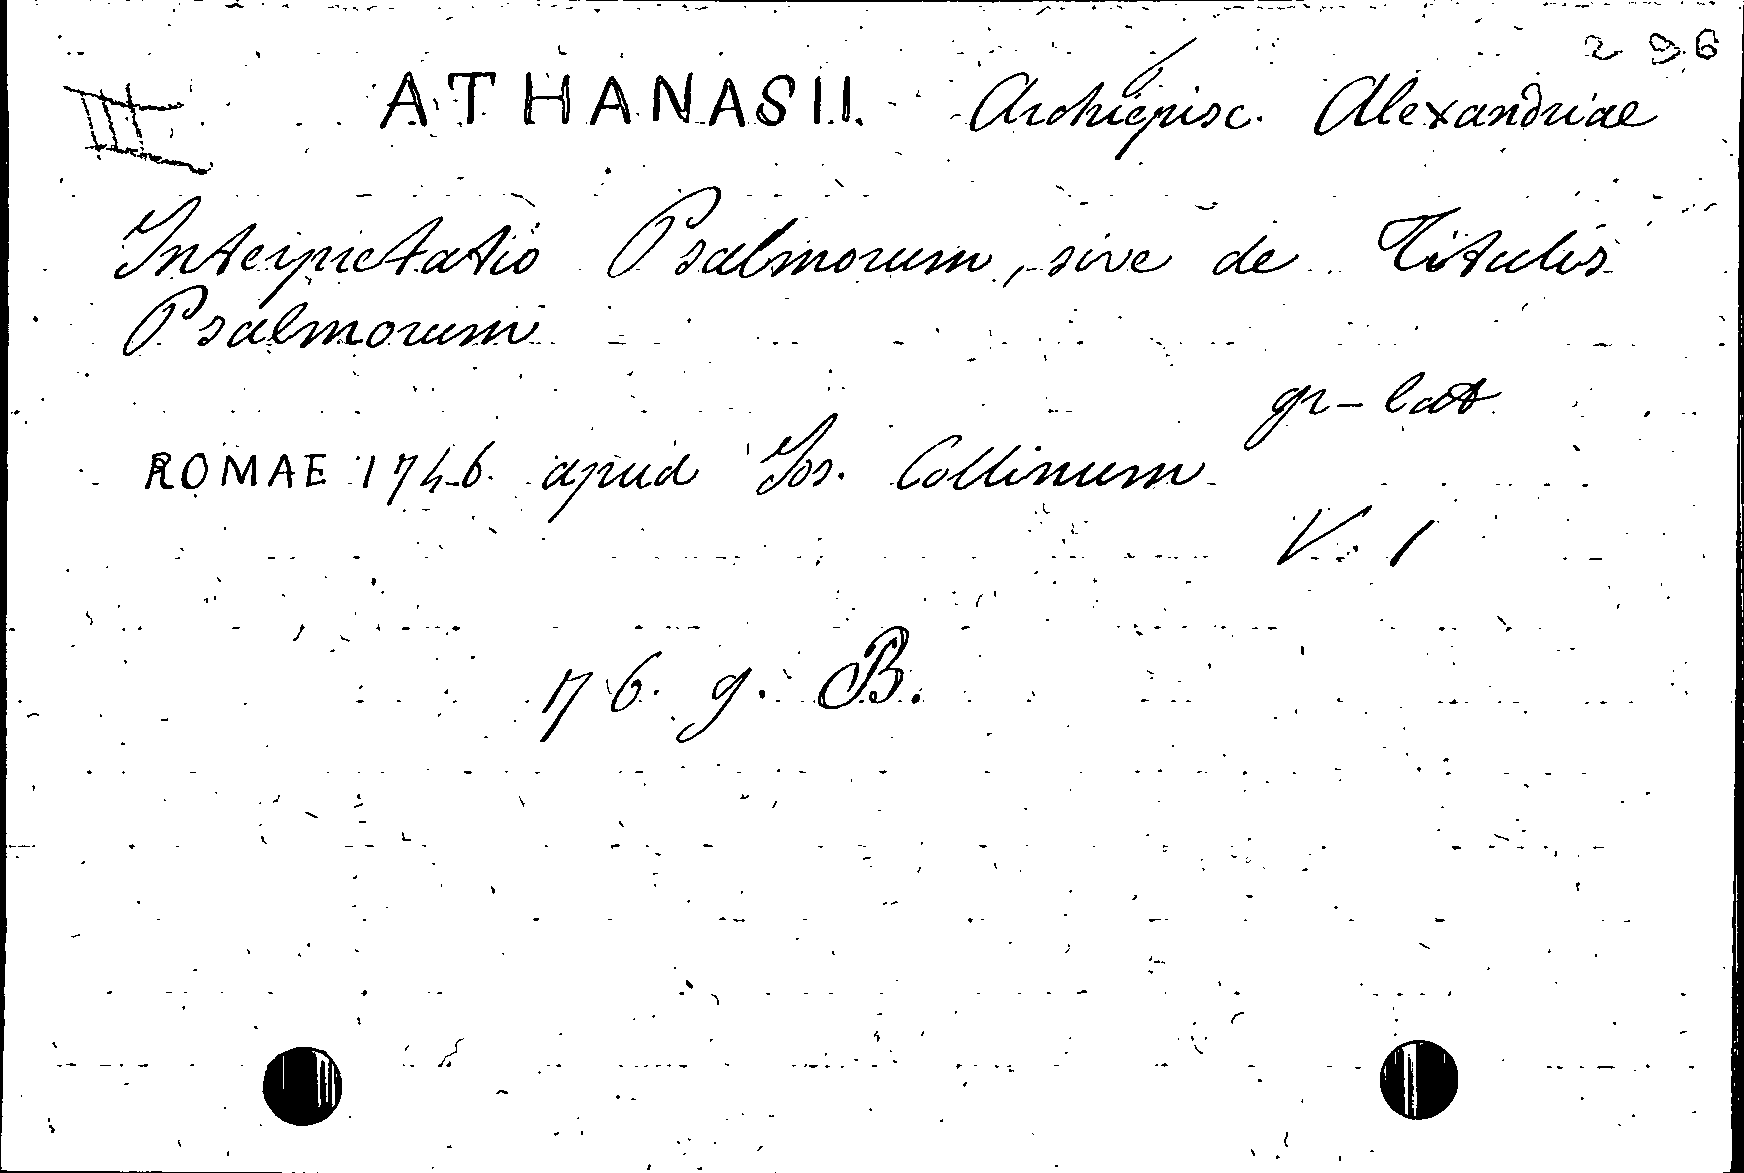 296
III ATHANASII. Archiepisc. Alexandriae
Interpretatio Psalmorum, sive de Titulis
Psalmorum
gr-lat
ROMAE 1746. apud Jos. Collinum
V. 1
76. g. B.